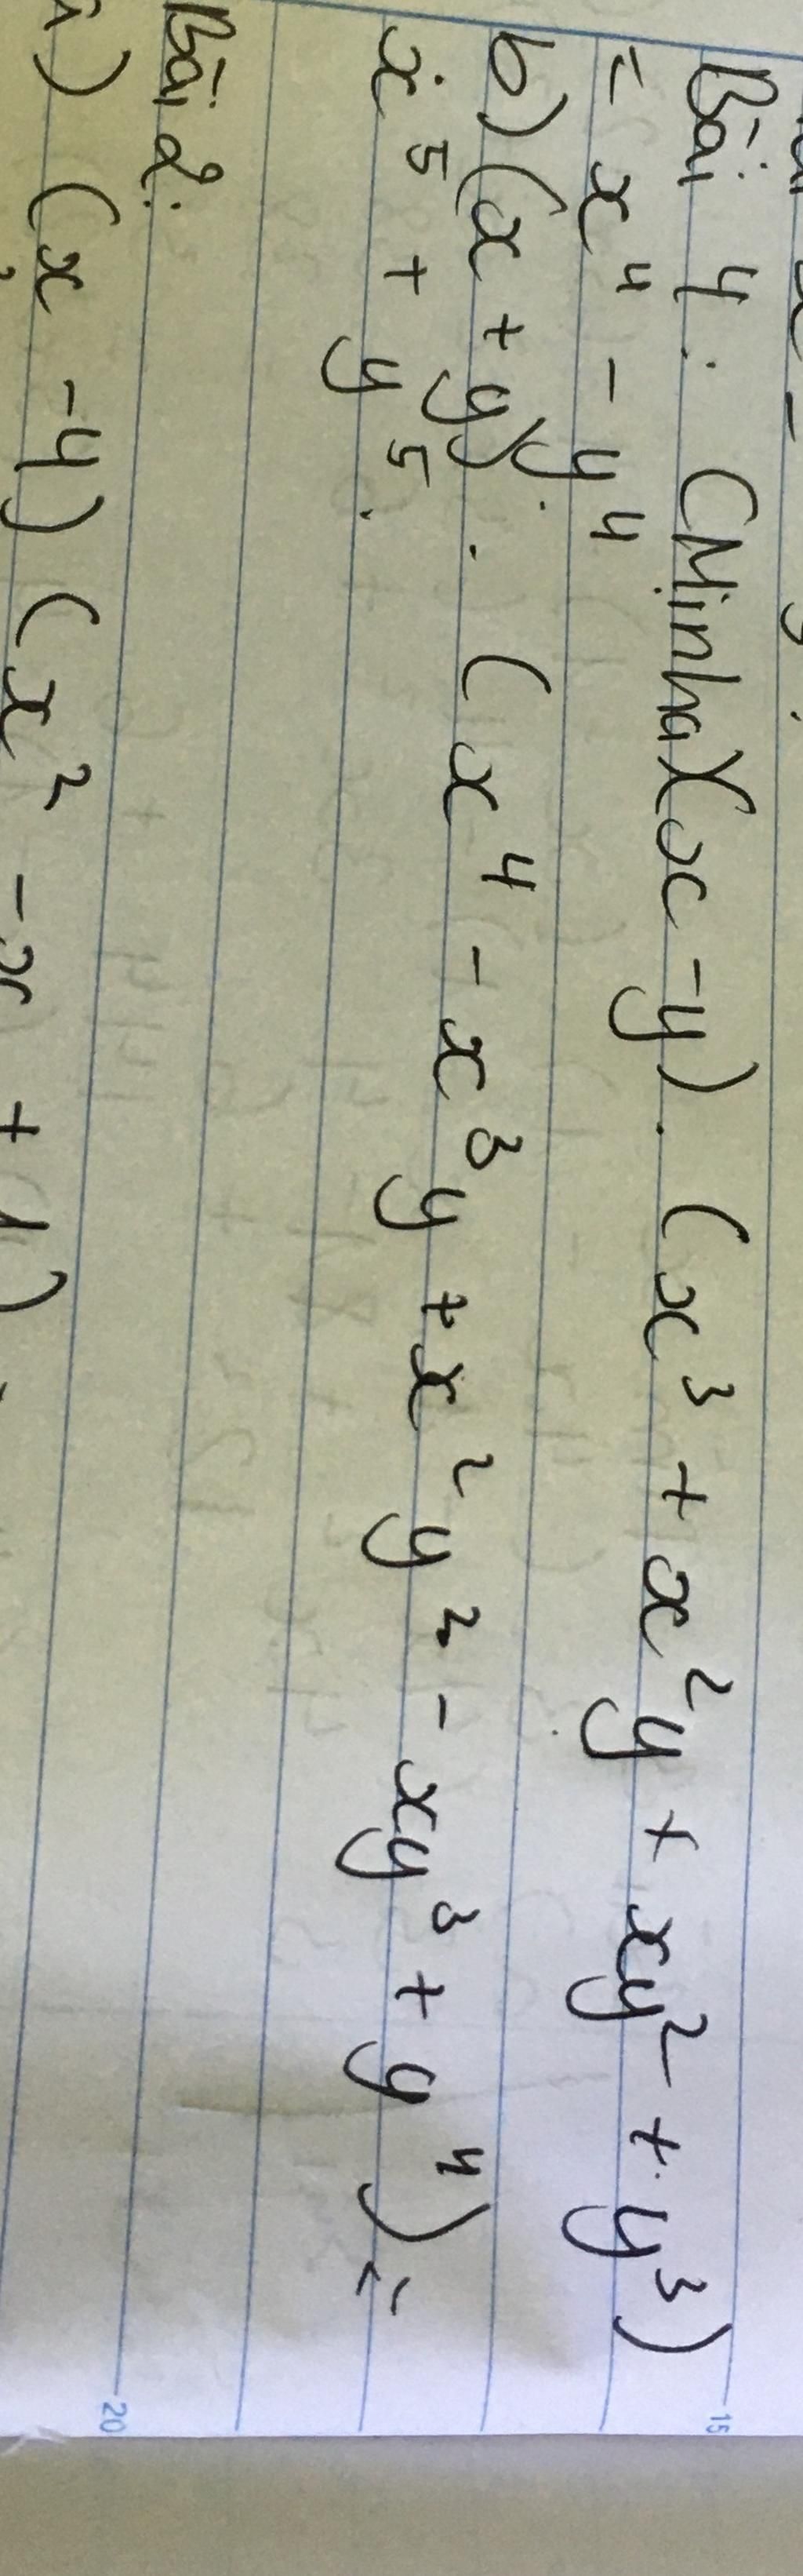 Bài 4: CMinha)(x-y).(x³ + x²y + xy² + y³)
= x⁴ - y⁴
b) (x + y).(x⁴ - x³y + x²y² - xy³ + y⁴) =
x⁵ + y⁵.
Bài 2:
a) (x - 4) (x² - x + 1)
15
20